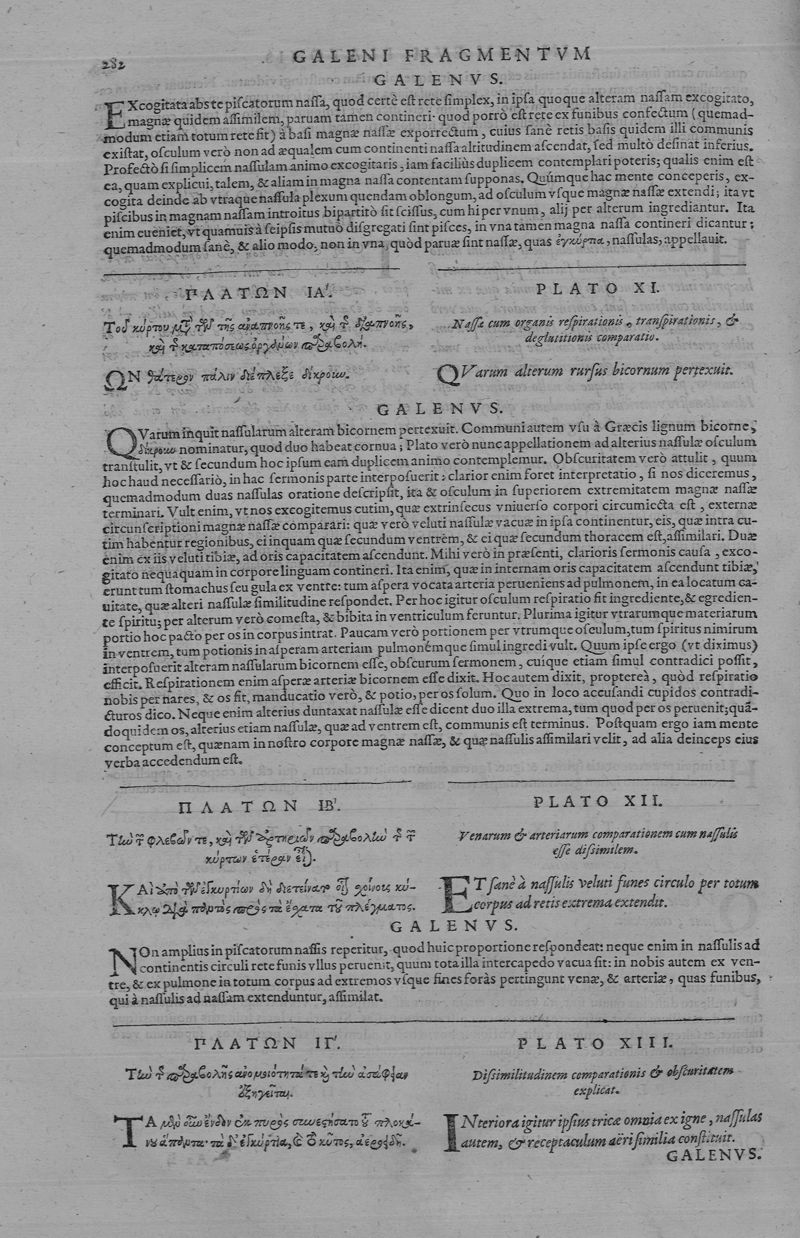 282 GALENI FRAGMENTVM
GALENVS.
EXcogitata abs te piſcatorum naſſa, quod certè eſt rete ſimplex, in ipſa quoque alteram naſſam excogitato,
magnæ quidem aſſimilem, paruam tamen contineri: quod porrò eſt rete ex funibus confectum (quemad-
modum etiam totum rete fit) à baſi magnæ naſſæ exporrectum, cuius ſanè retis baſis quidem illi communis
exiſtat, oſculum verò non ad æqualem cum continenti naſſa altitudinem aſcendat, ſed multò deſinat inferius.
Profectò ſi ſimplicem naſſulam animo excogitaris, iam facilius duplicem contemplari poteris; qualis enim eſt
ea, quam explicui, talem, & aliam in magna naſſa contentam ſupponas. Quúmque hac mente conceperis, ex-
cogita deinde ab vtraque naſſula plexum quendam oblongum, ad oſculum vſque magnæ naſſæ extendi; ita vt
piſcibus in magnam naſſam introitus bipartitò ſit ſciſſus, cum hi per vnum, alij per alterum ingrediantur. Ita
enim eueniet, vt quamuis à ſeipſis mutuò diſgregati ſint piſces, in vna tamen magna naſſa contineri dicantur;
quemadmodum ſanè, & alio modo, non in vna, quòd paruæ ſint naſſæ, quas ἐγκύρτια, naſſulas, appellauit.
ΠΛΑΤΩΝ ΙΑ'.
Τοῦ κύρτου μετὰ τῶν τῆς ἀναπνοῆς τε, καὶ τῆς διαπνοῆς,
καὶ τῆς καταπόσεως ὀργάνων παραβολή.
ΩΝ θάτερον πάλιν διέπλεξε δίκρουν.
PLATO XI.
Naſſæ cum organis reſpirationis, tranſpirationis, &
deglutitionis comparatio.
QVarum alterum rurſus bicornum pertexuit.
GALENVS.
QVarum inquit naſſularum alteram bicornem pertexuit. Communi autem vſu à Græcis lignum bicorne,
δίκρουν nominatur, quod duo habeat cornua; Plato verò nunc appellationem ad alterius naſſulæ oſculum
tranſtulit, vt & ſecundum hoc ipſum eam duplicem animo contemplemur. Obſcuritatem verò attulit, quum
hoc haud neceſſariò, in hac ſermonis parte interpoſuerit: clarior enim foret interpretatio, ſi nos diceremus,
quemadmodum duas naſſulas oratione deſcripſit, ita & oſculum in ſuperiorem extremitatem magnæ naſſæ
terminari. Vult enim, vt nos excogitemus cutim, quæ extrinſecus vniuerſo corpori circumiecta eſt, externæ
circunſcriptioni magnæ naſſæ comparari: quæ verò veluti naſſulæ vacuæ in ipſa continentur, eis, quæ intra cu-
tim habentur regionibus, ei inquam quæ ſecundum ventrem, & ei quæ ſecundum thoracem eſt, aſſimilari. Duæ
enim ex iis veluti tibiæ, ad oris capacitatem aſcendunt. Mihi verò in præſenti, clarioris ſermonis cauſa, exco-
gitato nequaquam in corpore linguam contineri. Ita enim, quæ in internam oris capacitatem aſcendunt tibiæ,
erunt tum ſtomachus ſeu gula ex ventre: tum aſpera vocata arteria perueniens ad pulmonem, in ea locatum ca-
uitate, quæ alteri naſſulæ ſimilitudine reſpondet. Per hoc igitur oſculum reſpiratio fit ingrediente, & egredien-
te ſpiritu; per alterum verò comeſta, & bibita in ventriculum feruntur. Plurima igitur vtrarumque materiarum
portio hoc pacto per os in corpus intrat. Paucam verò portionem per vtrumque oſculum, tum ſpiritus nimirum
in ventrem, tum potionis in aſperam arteriam pulmonémque ſimul ingredi vult. Quum ipſe ergo (vt diximus)
interpoſuerit alteram naſſularum bicornem eſſe, obſcurum ſermonem, cuique etiam ſimul contradici poſſit,
efficit. Reſpirationem enim aſperæ arteriæ bicornem eſſe dixit. Hoc autem dixit, propterea, quòd reſpiratio
nobis per nares, & os fit, manducatio verò, & potio, per os ſolum. Quo in loco accuſandi cupidos contradi-
cturos dico. Neque enim alterius duntaxat naſſulæ eſſe dicent duo illa extrema, tum quod per os peruenit; quã-
doquidem os, alterius etiam naſſulæ, quæ ad ventrem eſt, communis eſt terminus. Poſtquam ergo iam mente
conceptum eſt, quænam in noſtro corpore magnæ naſſæ, & quæ naſſulis aſſimilari velit, ad alia deinceps eius
verba accedendum eſt.
ΠΛΑΤΩΝ ΙΒ'.
Τὴν τῶν φλεβῶν τε, καὶ τῶν ἀρτηριῶν παραβολὴν τῆς τῶν
κύρτων ἑτέραν εἶναι.
ΚΑὶ ἀπὸ τῶν ἐγκυρτίων δὴ διετείνατο οἷον σχοίνους κύ-
κλῳ διὰ παντὸς πρὸς τὰ ἔσχατα τοῦ πλέγματος.
PLATO XII.
Venarum & arteriarum comparationem cum naſſulis
eſſe diſsimilem.
ET ſanè à naſſulis veluti funes circulo per totum
corpus ad retis extrema extendit.
GALENVS.
NOn amplius in piſcatorum naſſis reperitur, quod huic proportione reſpondeat: neque enim in naſſulis ad
continentis circuli rete funis vllus peruenit, quum tota illa intercapedo vacua ſit: in nobis autem ex ven-
tre, & ex pulmone in totum corpus ad extremos vſque fines foràs pertingunt venæ, & arteriæ, quas funibus,
qui à naſſulis ad naſſam extenduntur, aſſimilat.
ΠΛΑΤΩΝ ΙΓ'.
Τὴν τῆς παραβολῆς ἀνομοιότητά τε καὶ τὴν ἀσάφειαν
ἐξηγεῖται.
ΤΑ μὲν οὖν ἔνδον ἐκ πυρὸς συνεστήσατο τοῦ πλοκά-
νου ἅπαντα· τὰ δ' ἐγκύρτια, καὶ τὸ κύτος, ἀεροειδῆ.
PLATO XIII.
Diſsimilitudinem comparationis & obſcuritatem
explicat.
INteriora igitur ipſius tricæ omnia ex igne, naſſulas
autem, & receptaculum aëri ſimilia conſtituit.
GALENVS.